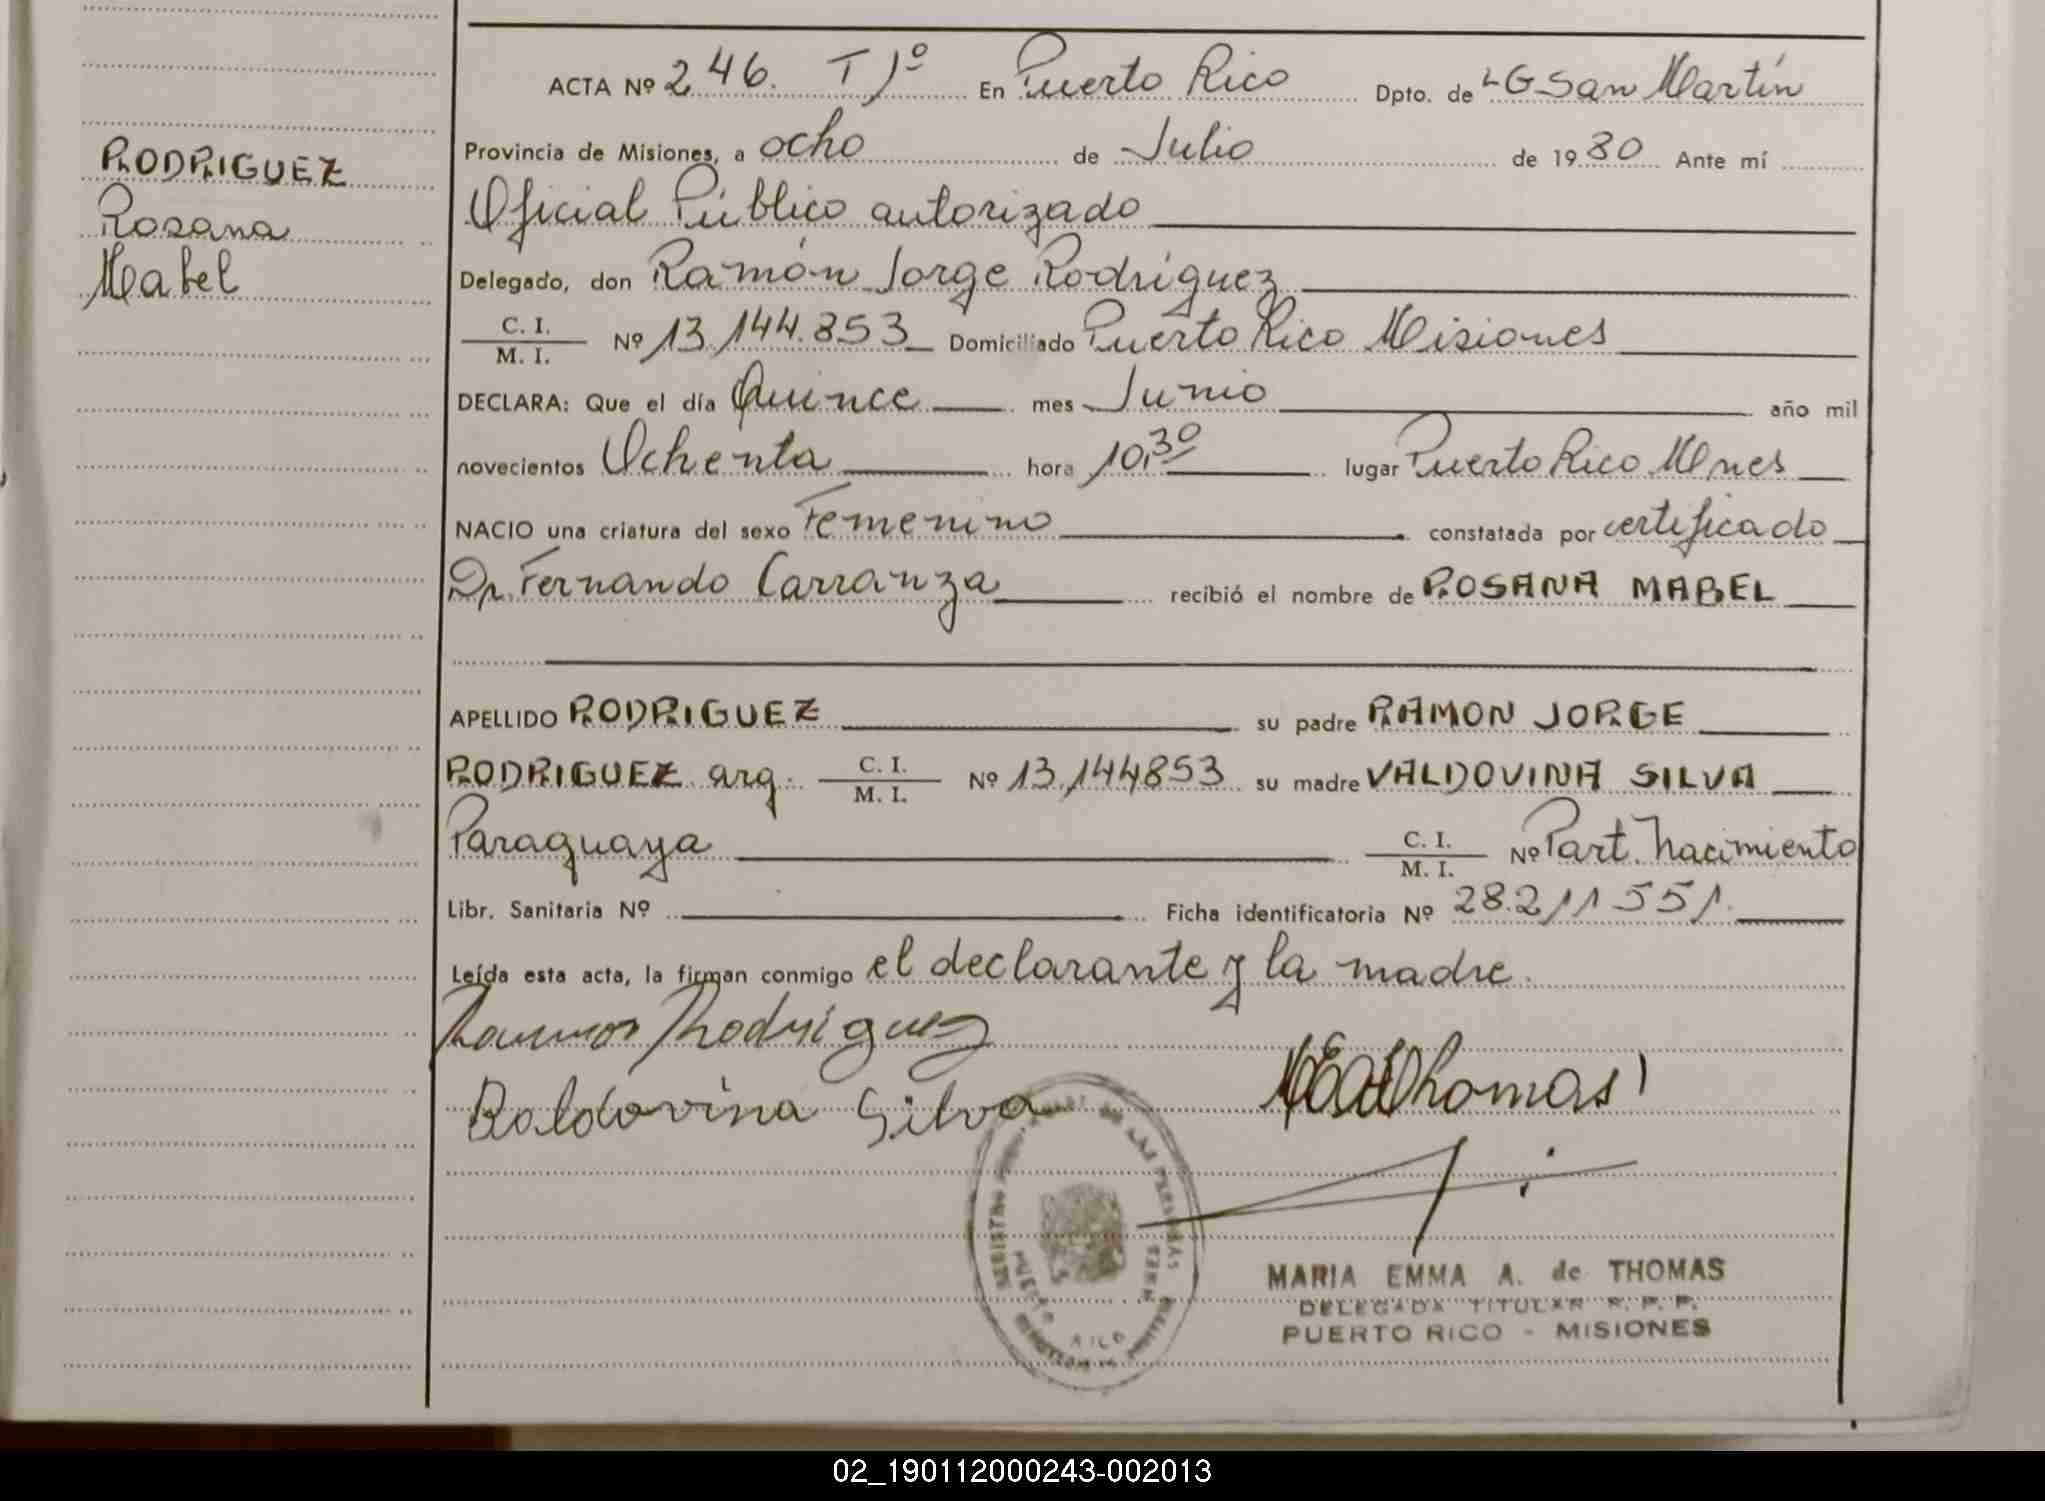 RODRIGUEZ
Rosana
Mabel
ACTA Nº 246. T 1º En Puerto Rico Dpto. de LG San Martín
Provincia de Misiones, a ocho de Julio de 1980 Ante mí
Oficial Público autorizado
Delegado, don Ramón Jorge Rodríguez
C. I.
M. I. Nº 13.144.853 Domiciliado Puerto Rico Misiones
DECLARA: Que el día Quince mes Junio año mil
novecientos Ochenta hora 10,30 lugar Puerto Rico Mnes
NACIO una criatura del sexo Femenino constatada por certificado
Dr. Fernando Carranza recibió el nombre de ROSANA MABEL
APELLIDO RODRIGUEZ su padre RAMON JORGE
RODRIGUEZ arg. C. I. M. I. Nº 13.144853 su madre VALDOVINA SILVA
Paraguaya C. I. M. I. Nº Part. Nacimiento
Libr. Sanitaria Nº Ficha identificatoria Nº 28.211551.
Leída esta acta, la firman conmigo el declarante y la madre.
Ramon Rodriguez
Baldovina Silva
Thomas
PUERTO RICO
MARIA EMMA A. de THOMAS
DELEGADA TITULAR R. P. P.
PUERTO RICO - MISIONES
02_190112000243-002013